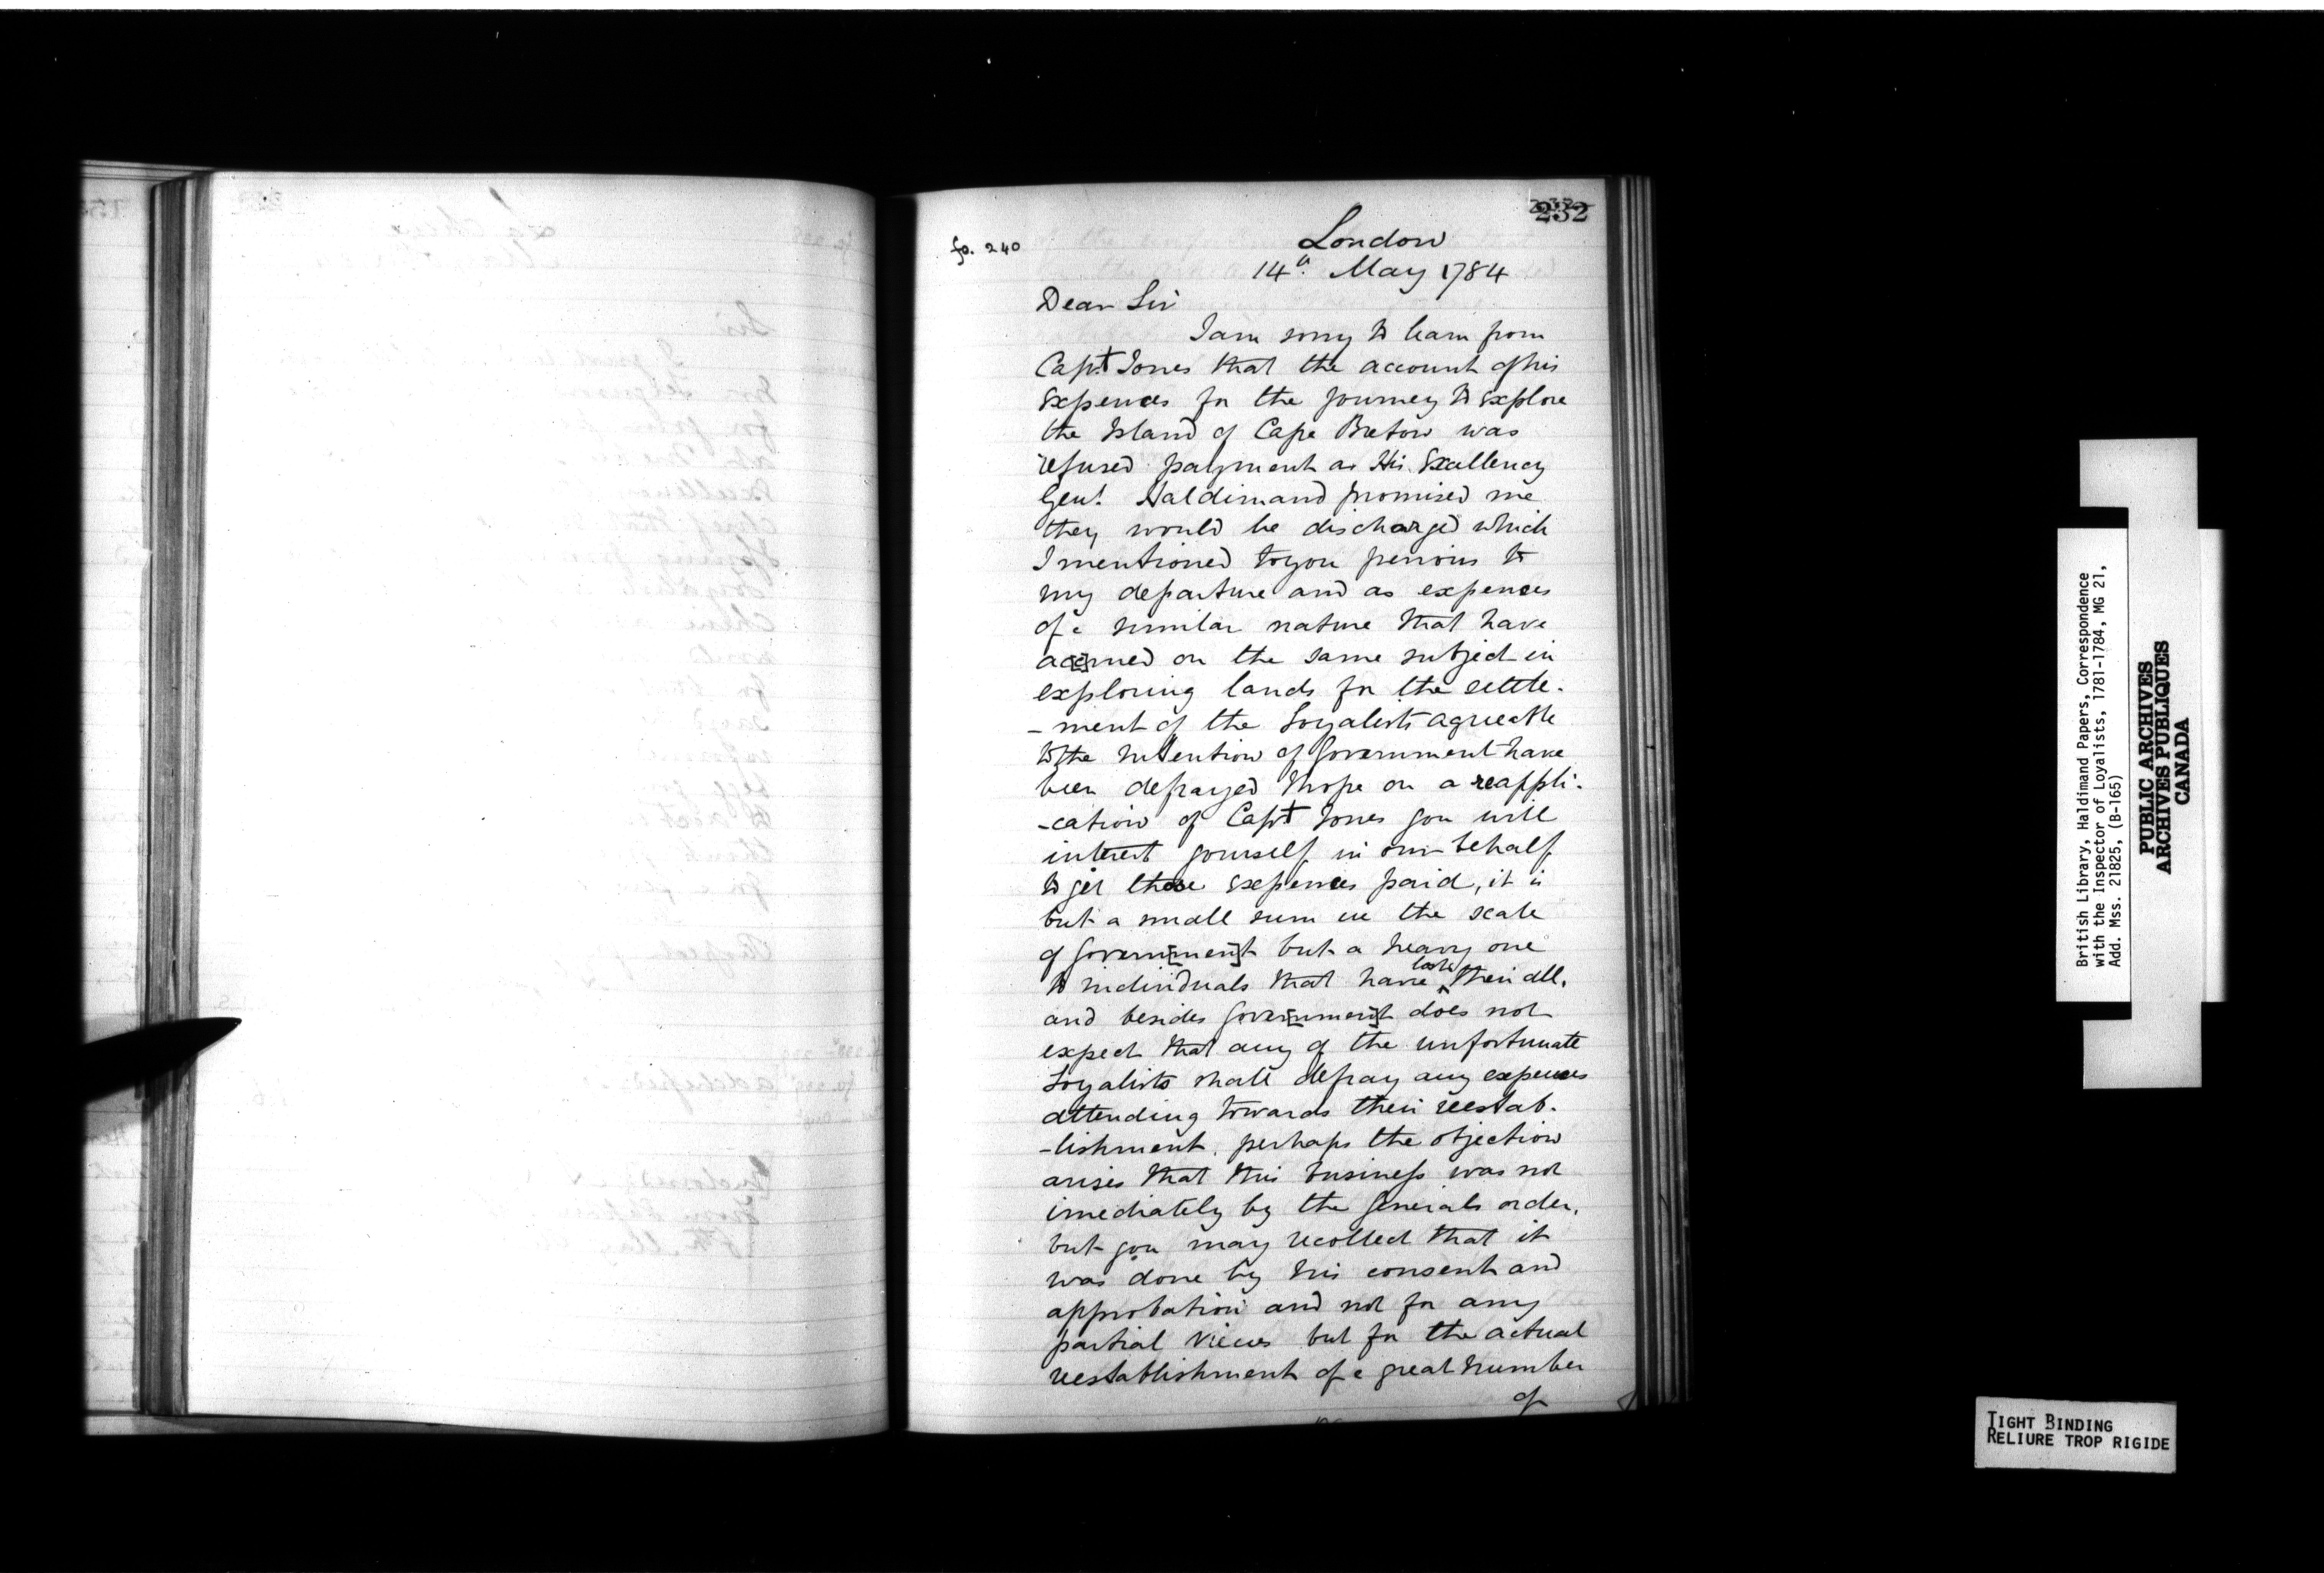 232
fo. 240
London
14th. May 1784
Dear Sir
I am sorry to learn from
Capt Jones that the account of his
Expences for the Journey to explore
the Island of Cape Breton was
refused payment as His Excellency
Genl. Haldimand promised me
they would be discharged which
I mentioned to you previous to
my departure and as expences
of a similar nature that have
acc[r]ued on the same subject in
exploring lands for the settle-
-ment of the Loyalists agreeable
to the Intention of Government have
been defrayed I hope on a reappli-
-cation of Capt Jones you will
interest yourself in our behalf
to get those expences paid, it is
but a small sum in the scale
of Govern[men]t but a heavy one
to individuals that have lost their all,
and besides Gover[nmen]t does not
expect that any of the unfortunate
Loyalists shall defray any expences
attending towards their reestab-
-lishment, perhaps the objection
arises that this business was not
imediately by the Generals order,
but you may recollect that it
was done by his consent and
approbation and not for any
partial views but for the actual
reestablishment of a great number
of
British Library, Haldimand Papers, Correspondence
with the Inspector of Loyalists, 1781-1784, MG 21,
Add. Mss. 21825, (B-165)
PUBLIC ARCHIVES
ARCHIVES PUBLIQUES
CANADA
TIGHT BINDING
RELIURE TROP RIGIDE